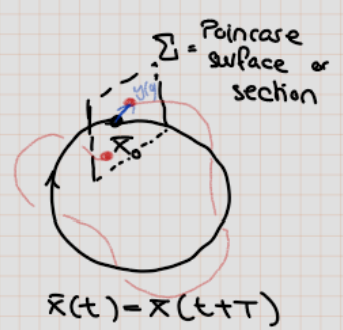 Σ = Poincase
surface or
section
y(0)
x̄₀
x̄(t) = x̄(t+T)